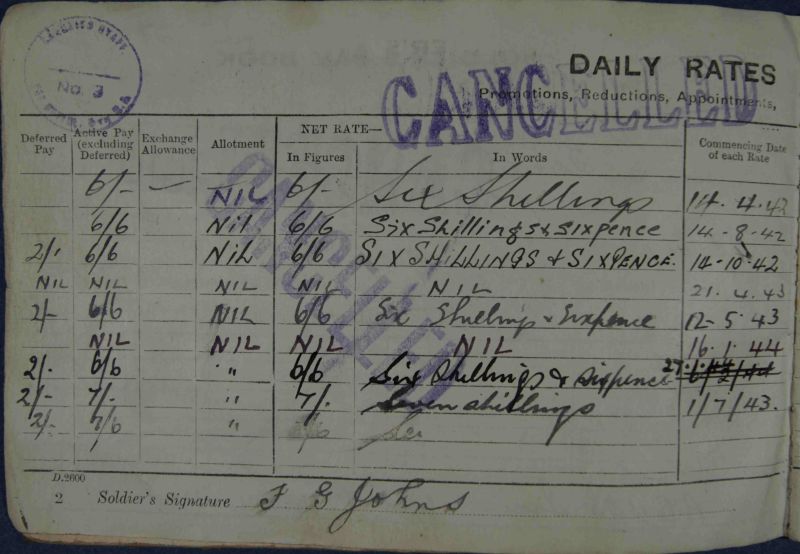 No. 3
CANCELLED
DAILY RATES
Promotions, Reductions, Appointments,
Deferred Pay Active Pay (excluding Deferred) Exchange Allowance Allotment NET RATE— In Figures In Words Commencing Date of each Rate
6/- — NIL 6/- Six Shillings 14.4.42
6/6 Nil 6/6 Six Shillings & Sixpence 14-8-42
2/- 6/6 NIL 6/6 SIX SHILLINGS & SIXPENCE. 14-10-42
NIL NIL NIL NIL NIL 21.4.43
2/- 6/6 NIL 6/6 Six Shillings & Sixpence 12-5-43
NIL NIL NIL NIL 16.1.44
2/- 6/6 " 6/6 Six Shillings & Sixpence
2/- 7/- " 7/- Seven shillings 1/7/43.
2/- "
CANCELLED
D.2600
2 Soldier's Signature F G Johns